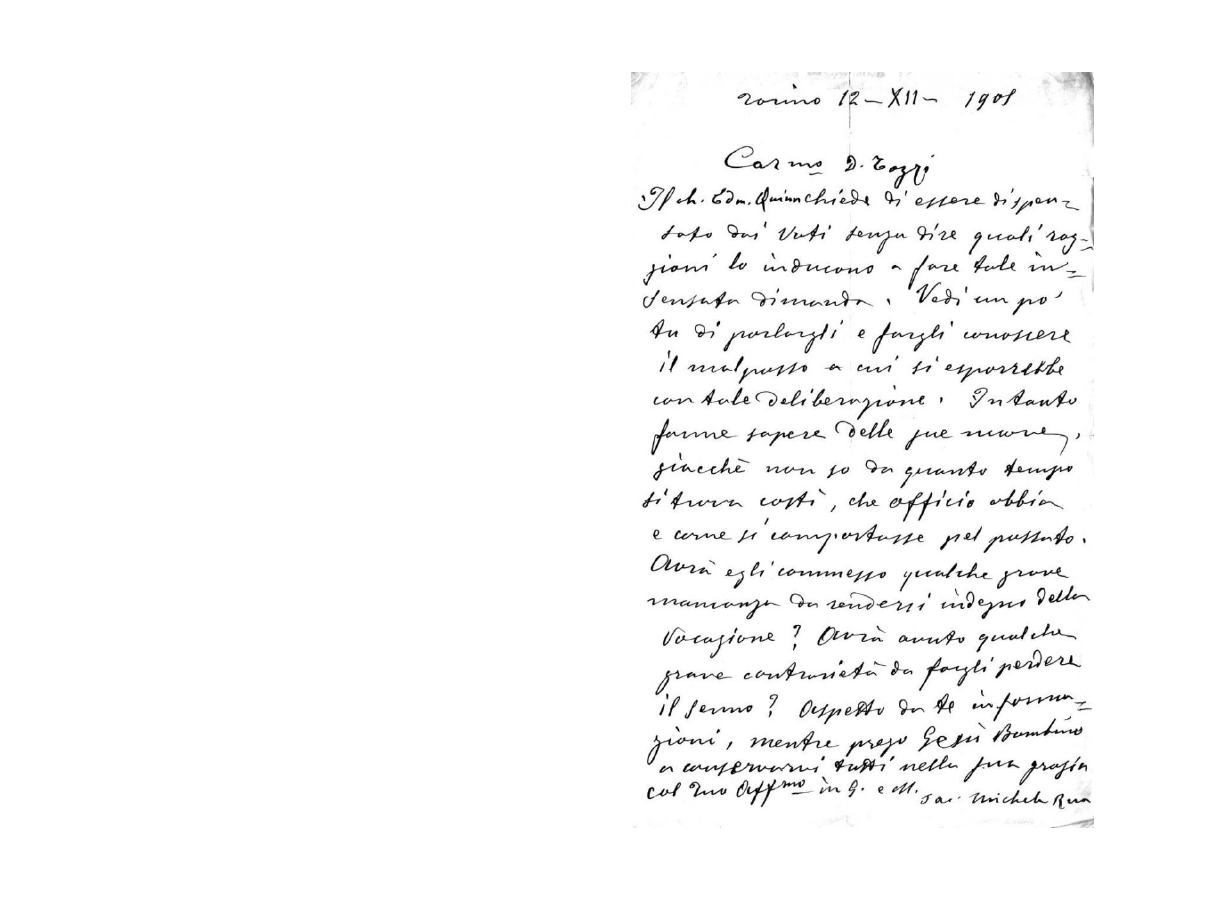 Torino 12 - XII - 1901
Car.mo D. Tozzi
Il ch. Edm. Quinn chiede di essere dispen=
sato dai Voti senza dire quali rag=
gioni lo inducono a fare tale in=
sensata dimanda. Vedi un po'
tu di parlargli e fargli conoscere
il mal passo a cui si esporrebbe
con tale deliberazione. Intanto
famme sapere delle sue nuove,
giacchè non so da quanto tempo
si trova costì, che officio abbia
e come si comportasse pel passato.
Avrà egli commesso qualche grave
mancanza da rendersi indegno della
vocazione? Avrà avuto qualche
grave contrarietà da fargli perdere
il senno? Aspetto da te informa=
zioni, mentre prego Gesù Bambino
a conservarvi tutti nella sua grazia
col tuo Aff.mo in G. e M. Sac. Michele Rua